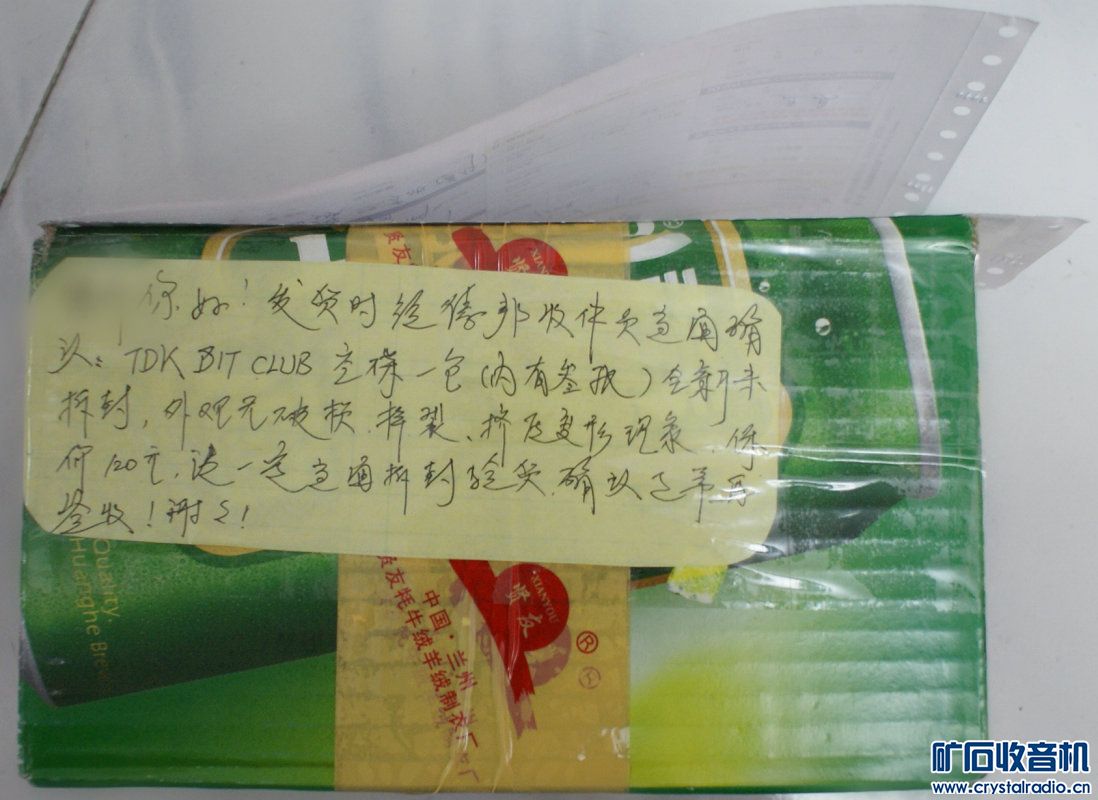 你好！发货时经德邦收件员当面确
认：TDK BIT CLUB 空裸一包（内有叁瓶）全新未
拆封，外观无破损、摔裂、挤压变形现象，保
价120元，请一定当面拆封验货，确认正常再
签收！谢谢！
Quality
Huanghe Brew
贤友
XIANYOU
贤友
®
中国·兰州
贤友牦牛绒羊绒制衣厂
矿石收音机
www.crystalradio.cn